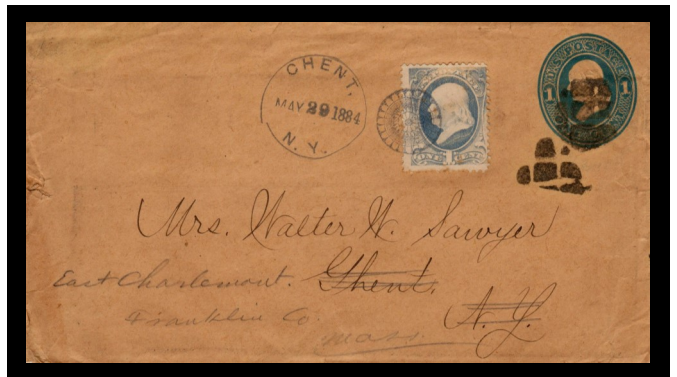 GHENT.
MAY 29 1884
N. Y.
U.S. POSTAGE
1 1
Mrs. Walter W. Sawyer
East Charlemont. Ghent.
Franklin Co. N.Y.
Mass.